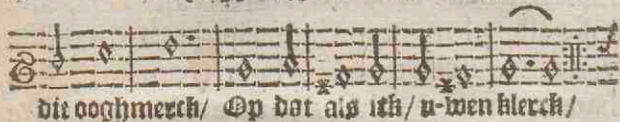 die ooghmerck/ Op dat als ick/ u-wen klerck/